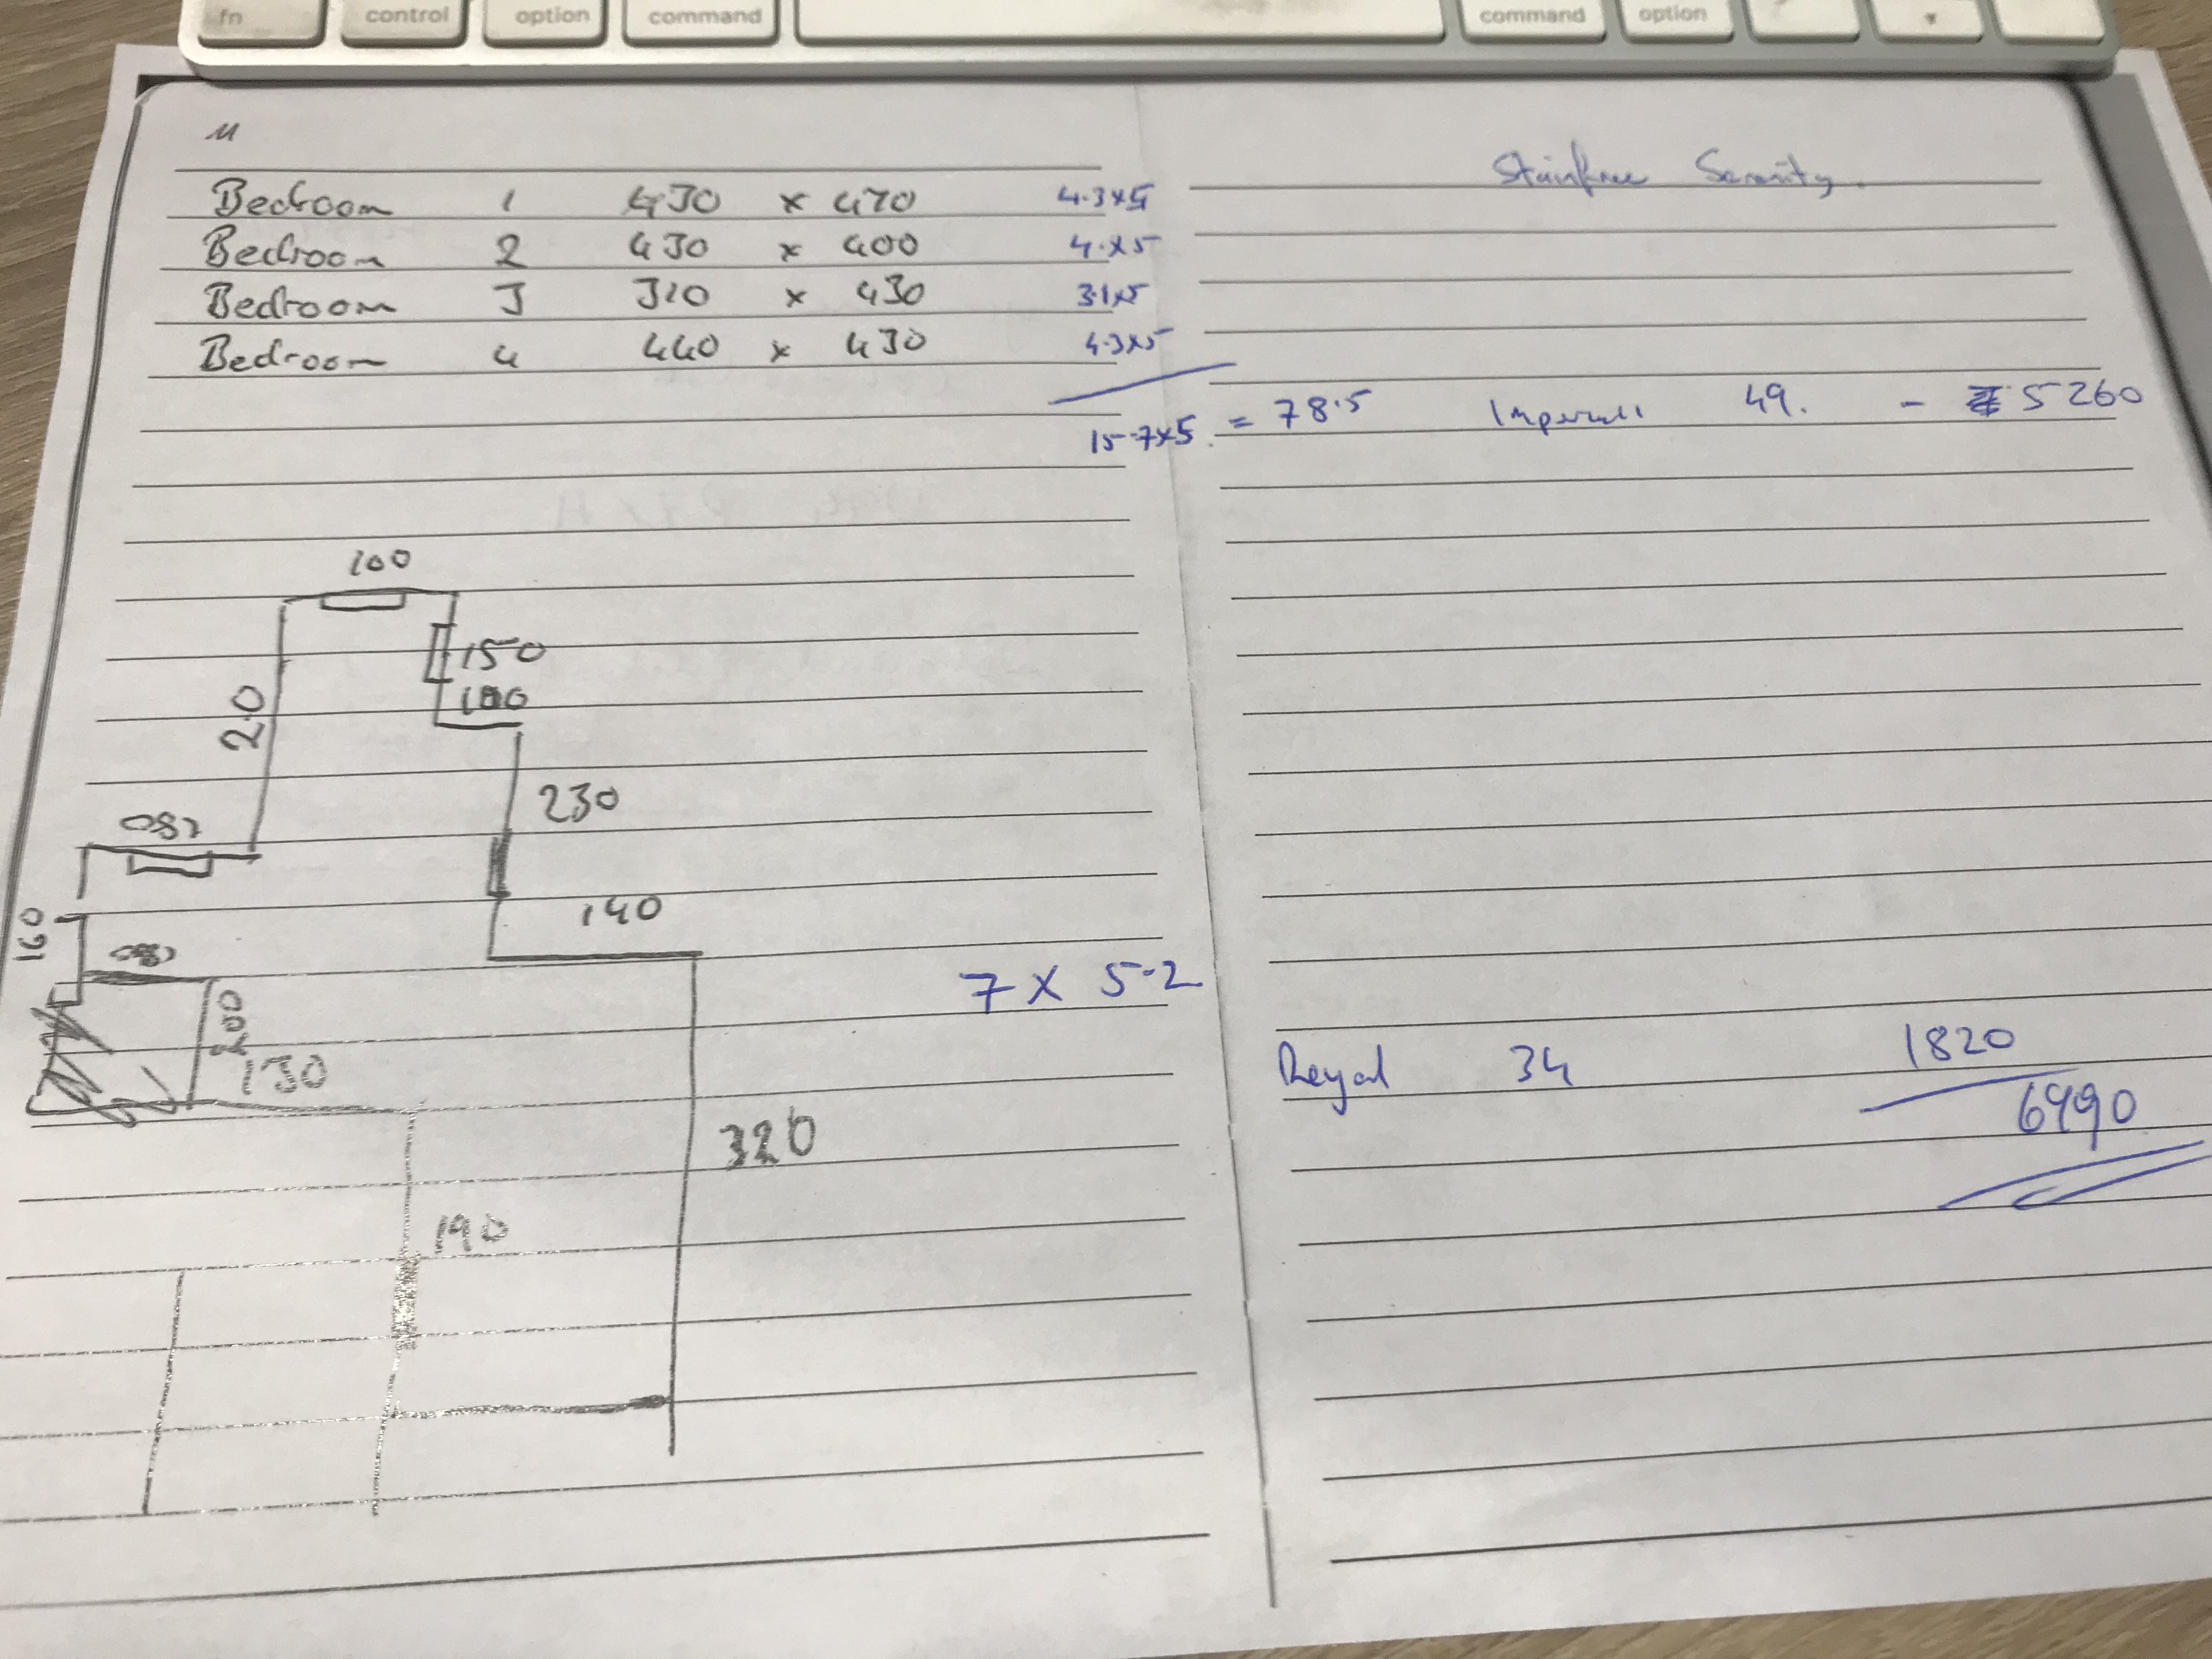 fn control option command command option
Bedroom 1 430 x 470 4.3x5
Bedroom 2 430 x 400 4.x5
Bedroom 3 310 x 430 3.1x5
Bedroom 4 440 x 430 4.3x5
15.7x5. = 78.5 49. - 5260
Stainfree Serenity.
100
150
100
20
230
180
140
160
180
200
130
7 x 5.2
Royal 34 1820
6990
320
190